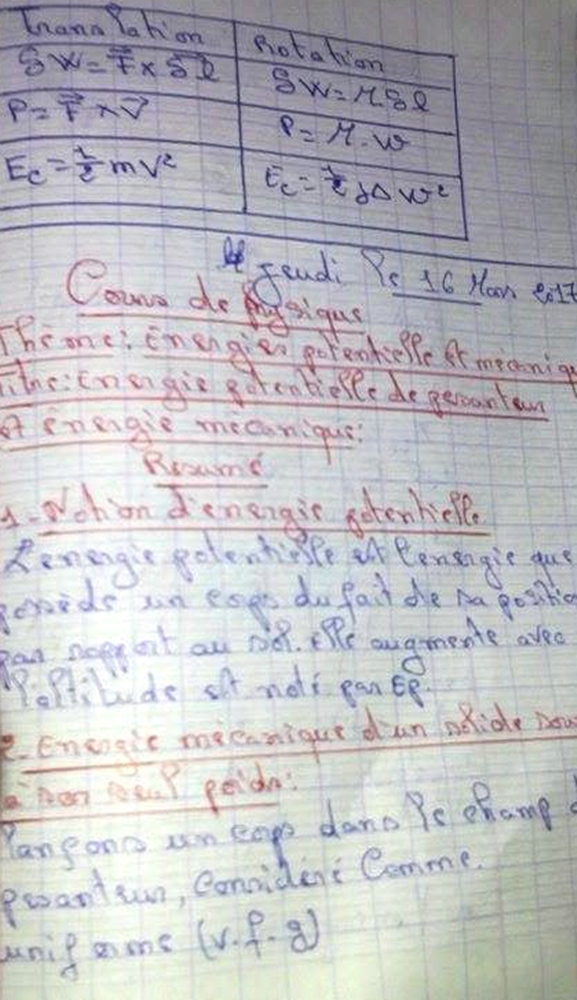 Translation Rotation
δW = F⃗ x δl⃗ δW = M δl
P = F⃗ x V⃗ P = M. w
Ec = 1/2 mv² Ec = 1/2 JΔ w²
jeudi le 16 Mars 2017
Cours de physique
Thème: Energies potentielle et mécaniqu
Titre: Energie potentielle de pesanteur
et énergie mécanique:
Resumé
1-Notion d'energie potentielle
L'energie potentielle est l'energie que
possède un corps du fait de sa positio
par rapport au sol. elle augmente avec
l'altitude est noté par Ep.
2-Energie mécanique d'un solide sou
à son seul poids:
lançons un corps dans le champ d
pesanteur, Considéré Comme.
uniforme (v.f-g)